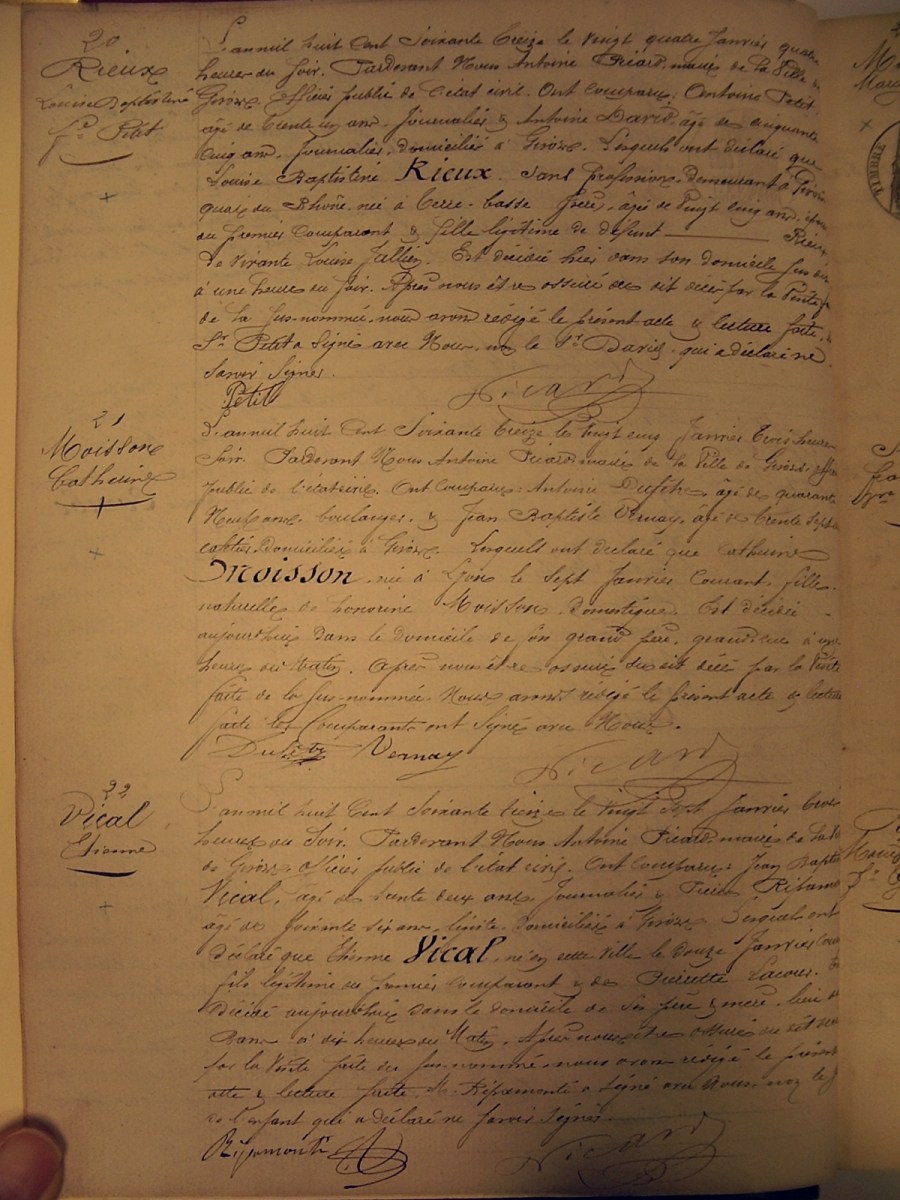 20
Rieux
Louise Baptistine
fe Petit
L'an mil huit Cent Soixante treize le vingt quatre Janvier quatre
heures du soir. Pardevant Nous Antoine Picard, maire de la Ville de
Givors, officier public de l'état civil. Ont comparu: Antoine Petit
âgé de trente un ans, Journalier & Antoine David âgé de cinquante
cinq ans, Journalier, domiciliés à Givors. Lesquels ont déclaré que
Louise Baptistine Rieux sans profession demeurant à Givors
quai du Rhône, née à Terre-basse âgée de vingt cinq ans,
au premier Comparant & fille légitime de défunt Rieux
de vivante Louise Jullien. Est décédée hier dans son domicile
à une heure du soir. Après nous être assuré du dit décès par la visite
de la sus-nommée, nous avons rédigé le présent acte & lecture faite,
Sr. Petit a signé avec Nous, non le Sr. David qui a déclaré ne
savoir signer.
Petit Picard
21
Moisson
Catherine
L'an mil huit Cent Soixante treize, le vingt cinq Janvier trois heures
soir. Pardevant Nous Antoine Picard maire de la Ville de Givors,
public de l'état civil. Ont comparu: Antoine âgé de quarante
Neuf ans, boulanger, & Jean Baptiste Vernay, âgé de trente sept
domiciliés à Givors. Lesquels ont déclaré que Catherine
Moisson, née à Lyon le sept Janvier courant, fille
naturelle de honorine Moisson, domestique. Est décédée
aujourd'hui dans le domicile de son grand père, grand'rue à une
heure du Matin. Après nous être assuré du dit décès par la visite
faite de la sus-nommée. Nous avons rédigé le présent acte & lecture
faite les Comparants ont signé avec Nous.
Vernay Picard
22
Vical
Etienne
L'an mil huit Cent Soixante treize le vingt sept Janvier trois
heures du soir. Pardevant Nous Antoine Picard maire de la
de Givors, officier public de l'état civil. Ont comparu: Jean Baptiste
Vical, âgé de trente deux ans, Journalier & Ripamonti
âgé de soixante six ans, domiciliés à Givors. Lesquels ont
déclaré que Etienne Vical, né en cette Ville le douze Janvier
fils légitime du premier comparant & de Pierrette Lacour. Est
décédé aujourd'hui dans le domicile de ses père & mère,
à dix heures du Matin. Après nous être assuré du dit décès
par la visite faite du sus-nommé nous avons rédigé le présent
acte & lecture faite Mr Ripamonti a signé avec Nous, non le
de l'enfant qui a déclaré ne savoir signer.
Ripamonti Picard
TIMBRE